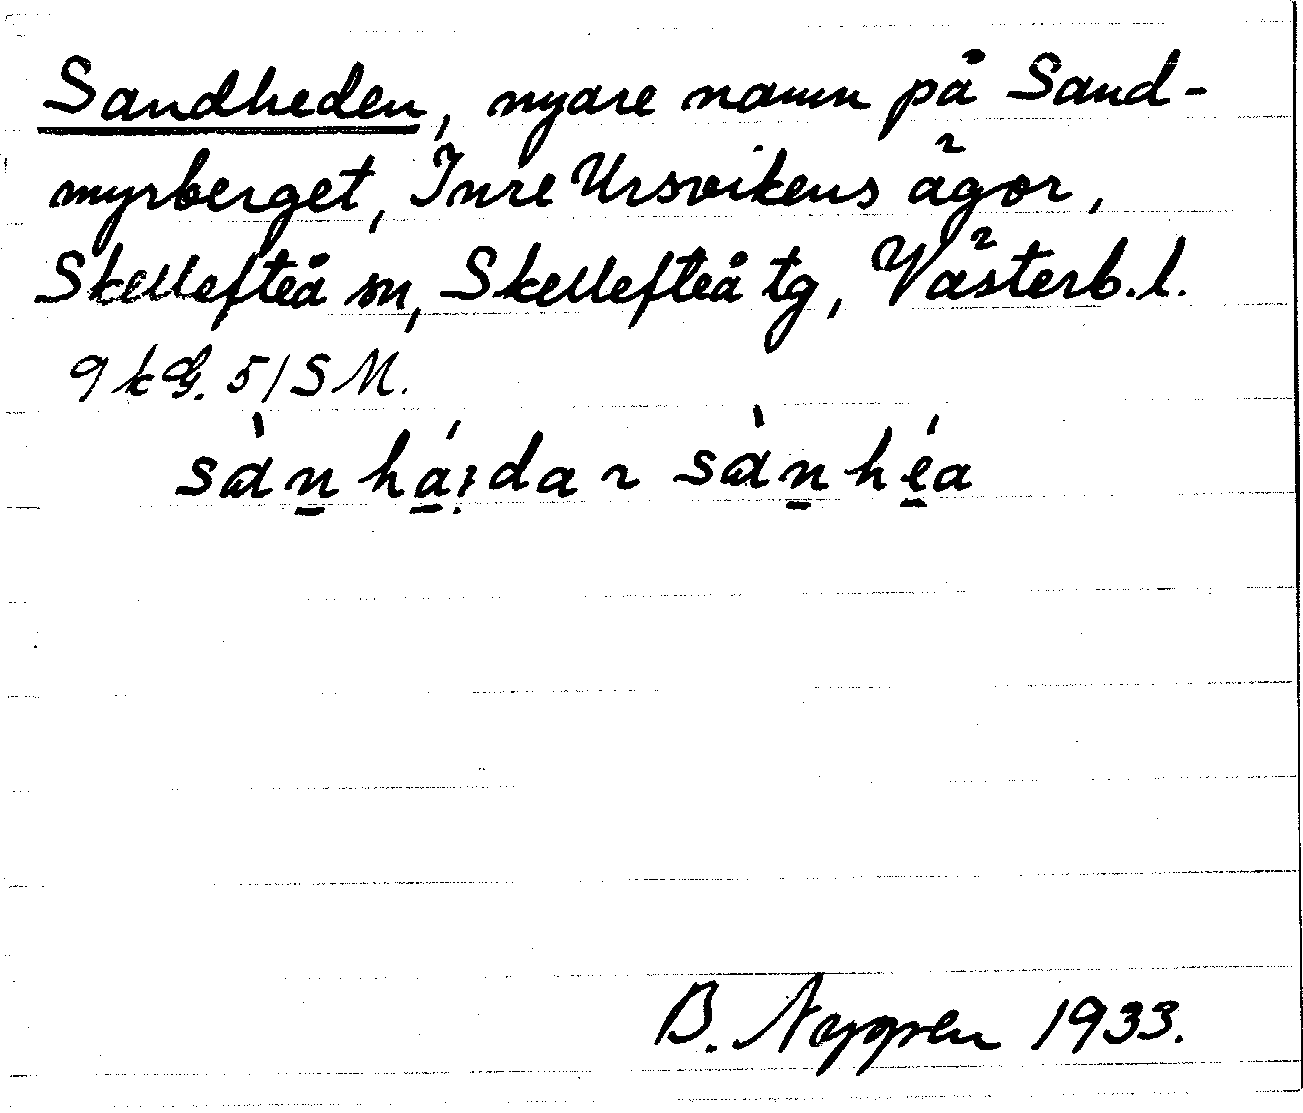 Sandheden, nyare namn på Sand-
myrberget, Inre Ursvikens ägor,
Skellefteå sn, Skellefteå tg, Västerb. l.
9 kG. 5/SM.
sànháida ~ sànhéa
B. Nygren 1933.